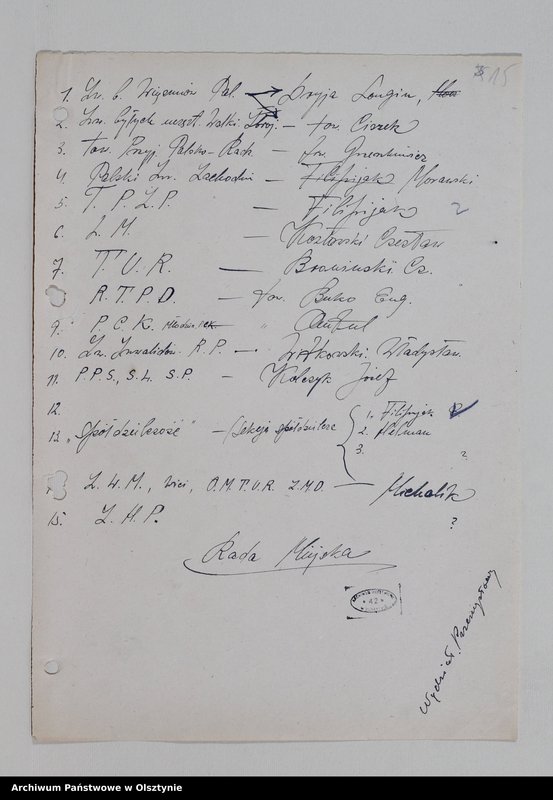 15
1. Zw. b. Więźniów Pol. → Dryja Longin,
2. Zw. byłych uczest. Walki Zbroj. — tow. Ciszek
3. Tow. Przyj. Polsko-Radz. — tow.
4. Polski Zw. Zachodni — Filipijak Morawski
5. T. P. Ż. P. — Filipijak 2
6. L. M. — Kozłowski Czesław
7. T. U. R. — Cz.
8. R. T. P. D. — tow. Buko Eug.
9. P. C. K. —
10. Zw. Inwalidów R. P. — Witkowski Władysław
11. P. P. S., S. L. S. P. — Kolczyk Józef
12.
13. „Spółdzielczość" — (Sekcja spółdzielcza
1. Filipijak
2. Helman
3. ?
Z. W. M., Wici, O. M. T. U. R. Z. M. D. — Michalik
15. Z. H. P. ?
Rada Miejska
42
Wydział Przemysłowy
Archiwum Państwowe w Olsztynie